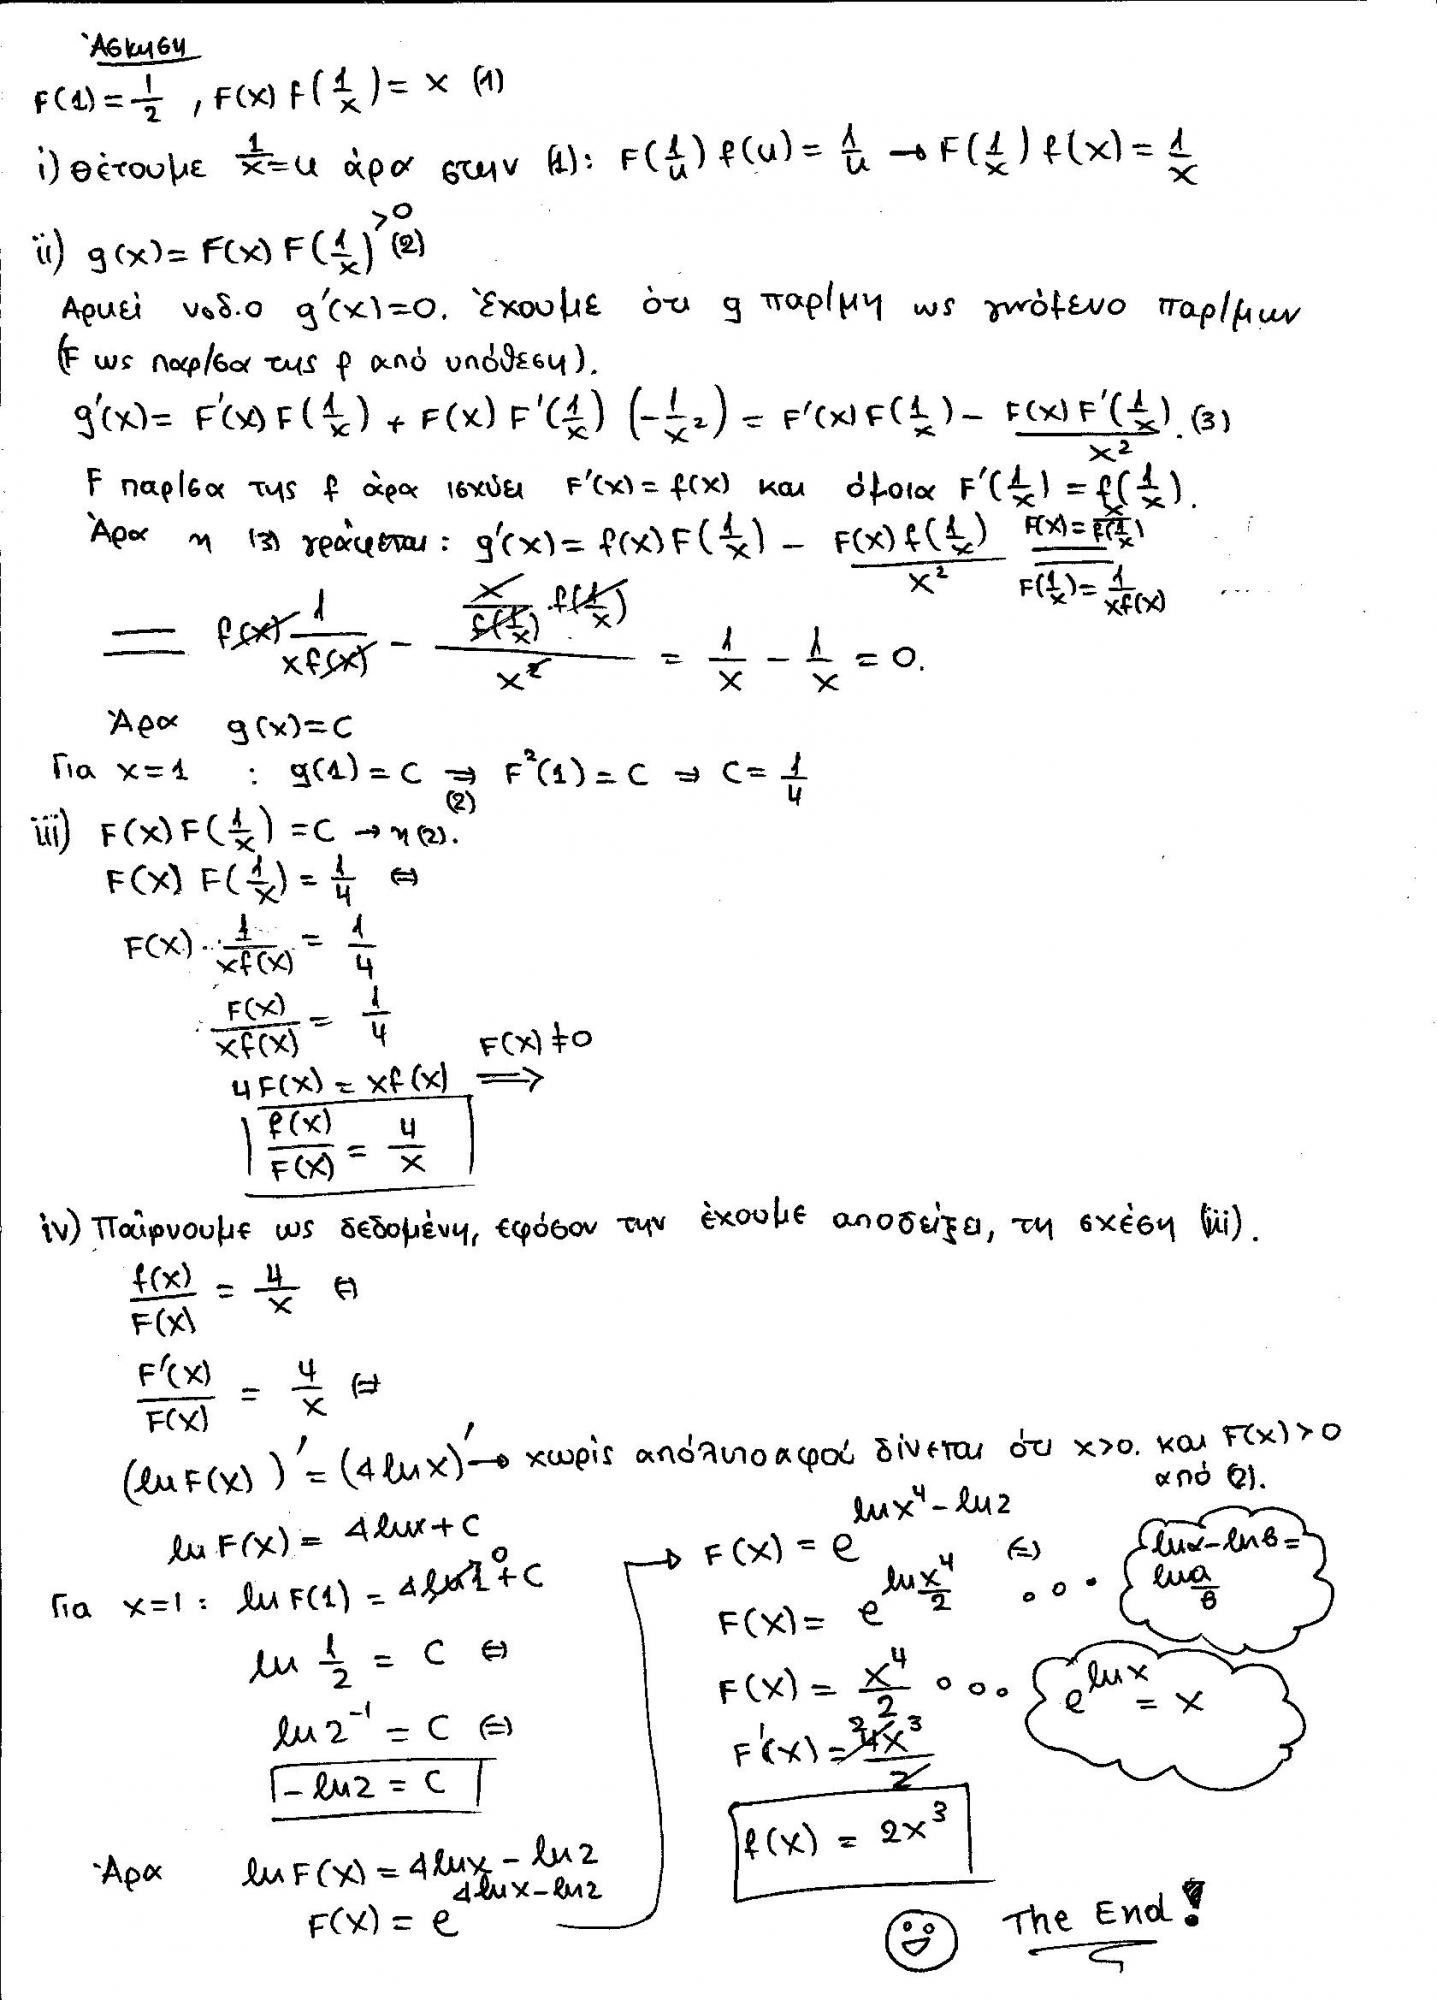 Άσκηση
F(1)=1/2 , F(x) f(1/x)= x (1)
i) θέτουμε 1/x=u άρα στην (1): F(1/u) f(u)= 1/u → F(1/x) f(x)= 1/x
ii) g(x)= F(x) F(1/x) >0 (2)
Αρκεί νδ.ο g'(x)=0. Έχουμε ότι g παρ/μη ως γινόμενο παρ/μων
(F ως παρ/σα της f από υπόθεση).
g'(x)= F'(x) F(1/x) + F(x) F'(1/x) (-1/x²) = F'(x) F(1/x) - F(x) F'(1/x)/x² . (3)
F παρ/σα της f άρα ισχύει F'(x)= f(x) και όμοια F'(1/x) = f(1/x).
Άρα η (3) γράφεται: g'(x)= f(x) F(1/x) - F(x) f(1/x)/x² F(x)= x/f(1/x) F(1/x)= 1/xf(x) ....
= f(x) 1/xf(x) - x/f(1/x) · f(1/x) / x² = 1/x - 1/x = 0.
Άρα g(x)=C
Για x=1 : g(1)=C ⇒(2) F²(1)=C ⇒ C=1/4
iii) F(x) F(1/x) =C → η (2).
F(x) F(1/x) = 1/4 ⇔
F(x) · 1/xf(x) = 1/4
F(x)/xf(x) = 1/4
4F(x) = xf(x) F(x)≠0 ⇒
f(x)/F(x) = 4/x
iv) Παίρνουμε ως δεδομένη, εφόσον την έχουμε αποδείξει, τη σχέση (iii).
f(x)/F(x) = 4/x ⇔
F'(x)/F(x) = 4/x ⇔
(ln F(x))' = (4 ln x)' → χωρίς απόλυτο αφού δίνεται ότι x>0. και F(x)>0
από (2).
ln F(x) = 4 lnx + C
Για x=1: ln F(1) = 4 ln1 0 + C
ln 1/2 = C ⇔
ln 2⁻¹ = C ⇔
-ln2 = C
Άρα ln F(x) = 4 lnx - ln2
F(x) = e^(4lnx-ln2)
→ F(x) = e^(lnx⁴-ln2) ⇔
F(x) = e^(ln x⁴/2) lnα-lnβ= ln α/β
F(x) = x⁴/2 e^(lnx) = x
F'(x) = 2 4x³/2
f(x) = 2x³
The End!